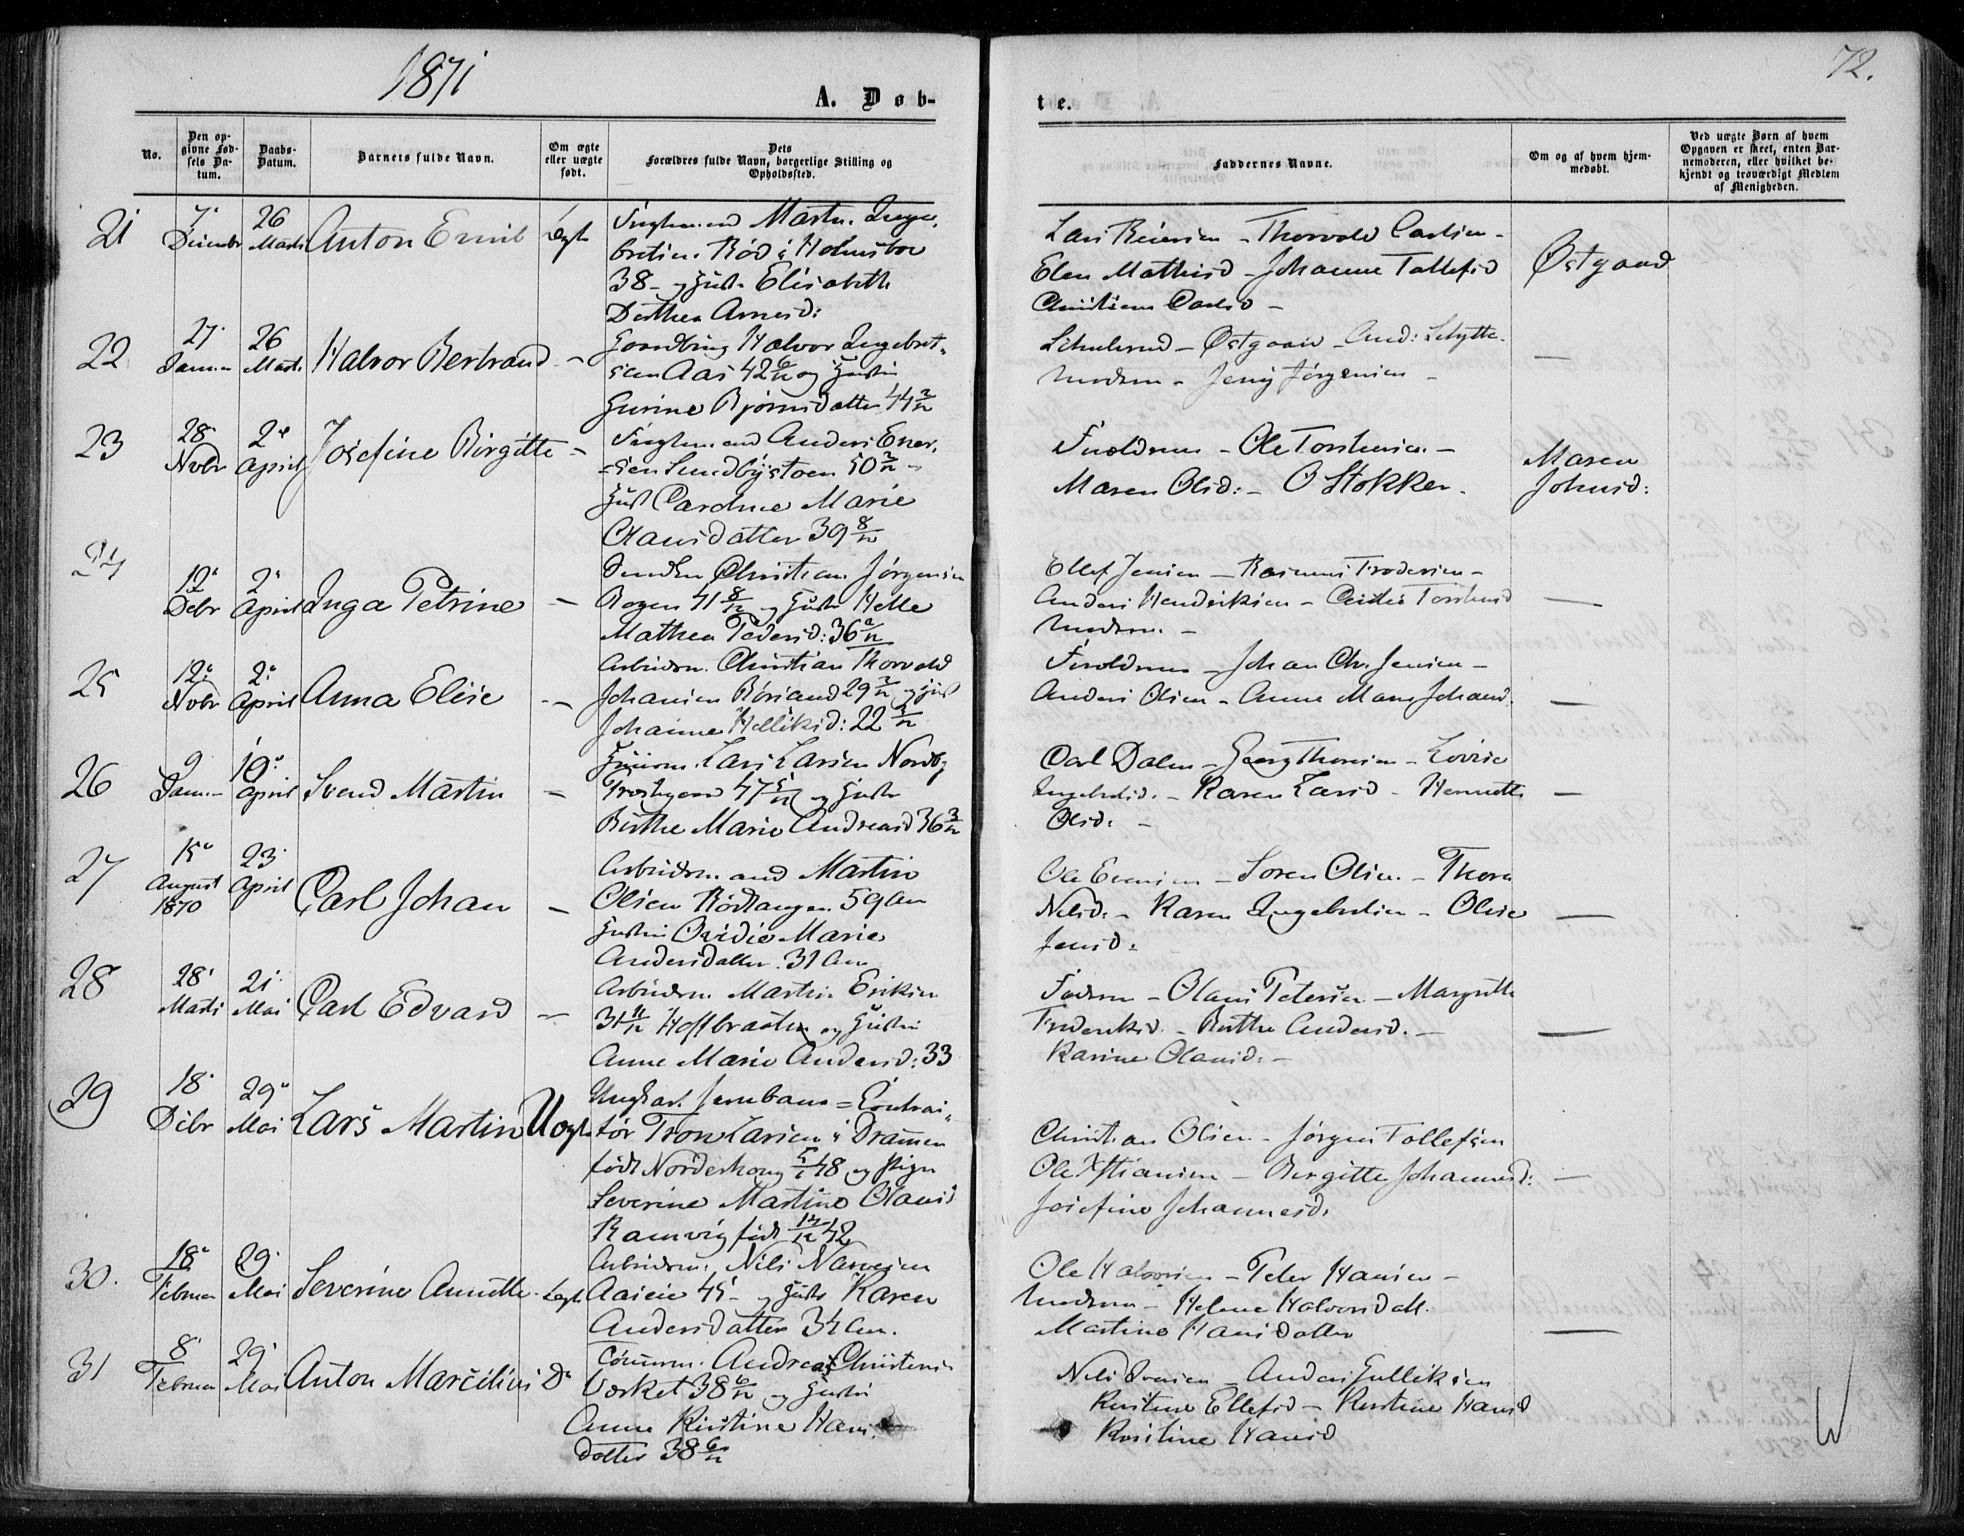 1871
72.
A. Døb-
te.
No.
Den op-
givne Fød-
sels Da-
tum.
Daabs-
Datum.
Barnets fulde Navn.
Om ægte
eller uægte
født.
Dets
Forældres fulde Navn, borgerlige Stilling og
Opholdssted.
Faddernes Navne.
Om og af hvem hjem-
medøbt.
Ved uægte Børn af hvem
Opgaven er skeet, enten Bar-
nemoderen, eller hvilket be-
kjendt og troværdigt Medlem
af Menigheden.
21
7.
26
Marts
Anton Emil
Martn. Inge-
bretsen. Rød i Holmsboe
38 - og Hust. Elisabeth
Dorthea Arnesd:
Lars Reiersen - Thorvald Carlsen -
Elen Mathisd - Johanne Tollefsd
Christiane Carlsd -
Østgaard
22
27.
Januar
26
Marts
Halvor Bertrand
-
Gaardbrug. Halvor Ingebret-
sen Aas 42 og Hustru
Gurine Bjørnsdatter 44
- Østgaard - And: Schytte.
Modren - Jenny Jørgensen -
-
23
28
Nvbr
2
April
Josefine Birgitte
-
Anders Ener-
sen Sundbystøen 50 -
Hust Caroline Marie
Clausdatter 39 8/12
Forældrene - Ole Torstensen. -
Maren Olsd: - O Stokker.
Maren
Johnsd:
24
12
Debr
2
April
Inga Petrine
-
Christian Jørgensen
41 8/12 og Hustr Helle
Mathea Pedersd: 36
Ellef Jensen - Rasmus Frodesen -
Anders Hendriksen - Torstensd
Modren. -
-
25
12.
Nvbr
2.
April
Anna Elise
-
Arbeidsm. Christian Thorvald
Johansen 29 og Hust
Johanne Helliksd: 22
Forældrene - Johan Chr. Jensen -
Anders Olsen - Anne Marie Johansd.
-
26
9
Januar
10.
April
Svend Martin
-
Lars Larsen Nordby
47 og Hustr
Birthe Marie Andreasd 36 3/12
Carl Dalen - Georg Thoresen - Lovise
Ingebretsd. - Karen Larsd - Hennette
Olsd. -
-
27
15
August
1870
23
April
Carl Johan
-
Arbeidsm. Martin
Olsen Rødtangen 59 Aar
Hustru Ovidie Marie
Andersdatter. 31 Aar
Ole Evensen - Søren Olsen - Thora
Nilsd. - Karen Ingebretsen - Olise
Jensd.
-
28
28
Marts
21
Mai
Carl Edvard
-
Arbeidsm. Martin Eriksen
31 11/12 Hoffbraaten og Hustru
Anne Marie Andersd: 33
Fadren - Olaus Petersen - Margrethe
Frederiksd. - Birthe Andersd. -
Karine Olausd. -
-
29
18.
Debr
29
Mai
Lars Martin
Uægt
Ungkarl Jernbane=Contrac-
tør Tron Larsen i Drammen
født Norderhoug 48 og Pige
Severine Martine Olausd
Ramvig født 42
Christian Olsen - Jørgen Tollefsen
Ole Xstiansen - Birgitte Johannesd:
Josefine Johannesd.
-
30.
18
Februar
29
Mai
Severine Annette
Ægte
Arbeidsm. Nils Narvesen
Aaseie 45 - og Hustr Karen
Andersdatter 34 Aar.
Ole Halvorsen - Peter Hansen -
Modren - Helene Halvorsdatt.
Martine Hansdatter
-
31
8
Februar
29
Mai
Anton Marcilius
Do
Tømmerm. Andreas Christens.
Værket 38 6/12 og Hustru
Anne Kirstine Hans
datter 38 6/12
Nils Iversen - Anders Gulliksen
Kirstine Ellefsd - Kirstine Hansd
Kirstine Hansd